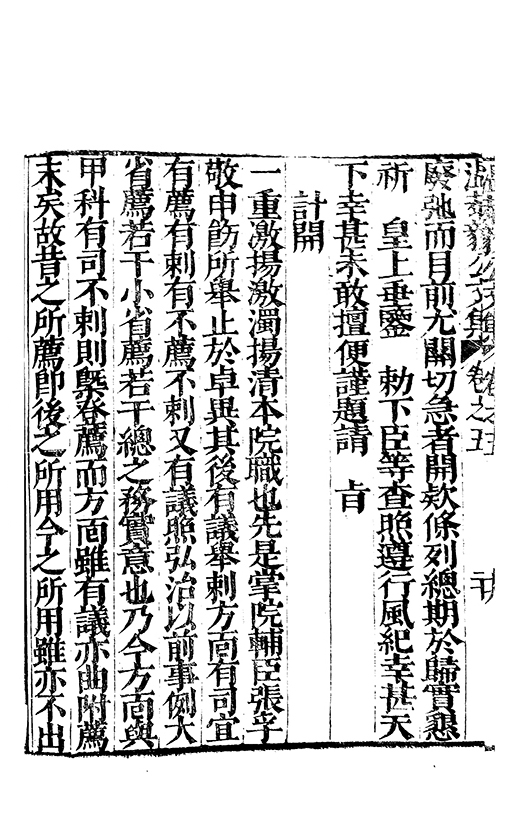 溫恭毅公文集 卷之五 二十
廢弛而目前尤關切急者開欵條列總期於歸實懇
祈 皇上垂鑒 勅下臣等查照遵行風紀幸甚天
下幸甚未敢擅便謹題請 㫖
計開
一重激揚激濁揚清本院職也先是掌院輔臣張孚
敬申飭所舉止於卓異其後有議舉刺方面有司宜
有薦有刺有不薦不刺又有議照弘治以前事例大
省薦若干小省薦若干總之務實意也乃今方面與
甲科有司不刺則槩登薦而方面雖有議亦曲附薦
末矣故昔之所薦即後之所用今之所用雖亦不出